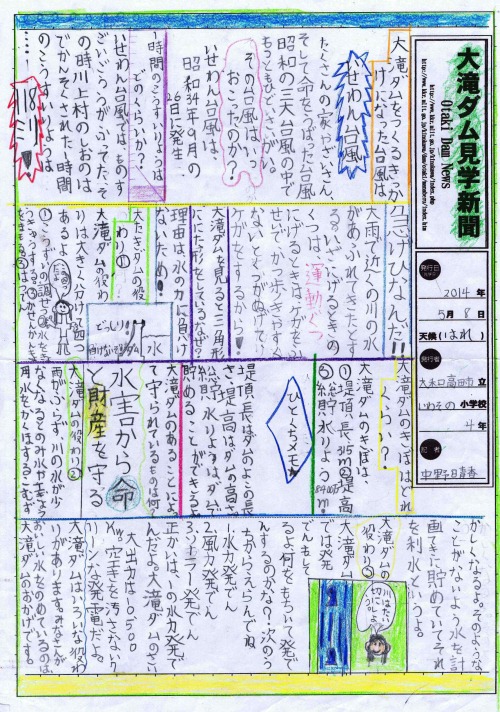 大滝ダム見学新聞
Otaki Dam News
発行日
2014年
5月8日
天候(はれ)
発行者
大和高田市立
いわその小学校
4年
記者
大滝ダムをつくるきっか
けになった台風は
いせわん台風
たくさんの家やざいさん、
そして命をうばった台風
昭和の三大台風の中で
もっともひどいさいがい。
その台風は、いつ
おこったのか?
いせわん台風は
昭和34年9月の
26日に発生
1時間のこうすいりょうは
どのくらいか?
いせわん台風では、ものす
ごいごううがふってた。そ
の時川上村の
でかんそくされた1時間
のこうすいりょうは
……118ミリ!!
大雨で近くの川の水
があふれてきたとす
る。いざにげるときの
くつは、運動ぐつ
にげるときはケガをし
せいで、かつ歩きやすく
ないと
がをするから。
大滝ダムを見ると三角形
ににた形をしているなぜ?
理由は、水の力に負けけ
ないため!
おおたきダムの役
わり①
大滝ダムの役わ
りは大きく分けて四つ
あるよ
どっしり!!
水
大滝ダムのきぼはどれ
くらい?
大滝ダムのきぼは、
①堤頂長315m②堤高
100m
③総貯水りょう8400万m³
ひとくちメモ
堤頂長はダムのよこの長
さ、堤高はダムの高さ
総貯水りょうは、ダムに
貯めることができる水
大滝ダムのあることによっ
て守られているものは何?
水害から命
と財産を守る
大滝ダムの役わり②
雨がふらず、川の水が少
なくなるとのみ水や
用水などがふそくするこまむず
かしくなるよ。そのような
ことがないよう水を計
画きに貯めていてそれ
を利水というよ。
大滝ダムの
役わり③
大滝ダム
では発
でんもして
るよ。何をもちいて発で
んするのかな?次のう
ちからえらんでね
1.水力発でん
2.風力発でん
3.ソーラー発でん
正かいは、1の水力発で
んだよ。大滝ダムのさい
大出力は10500
kW。空きを汚さないク
リーンな発電だよ。
大滝ダムはいろいろな役わ
りがあります。みなさんが
おいし水をのめているのは、
大滝ダムのおかげです。
川はたい
切にしよ